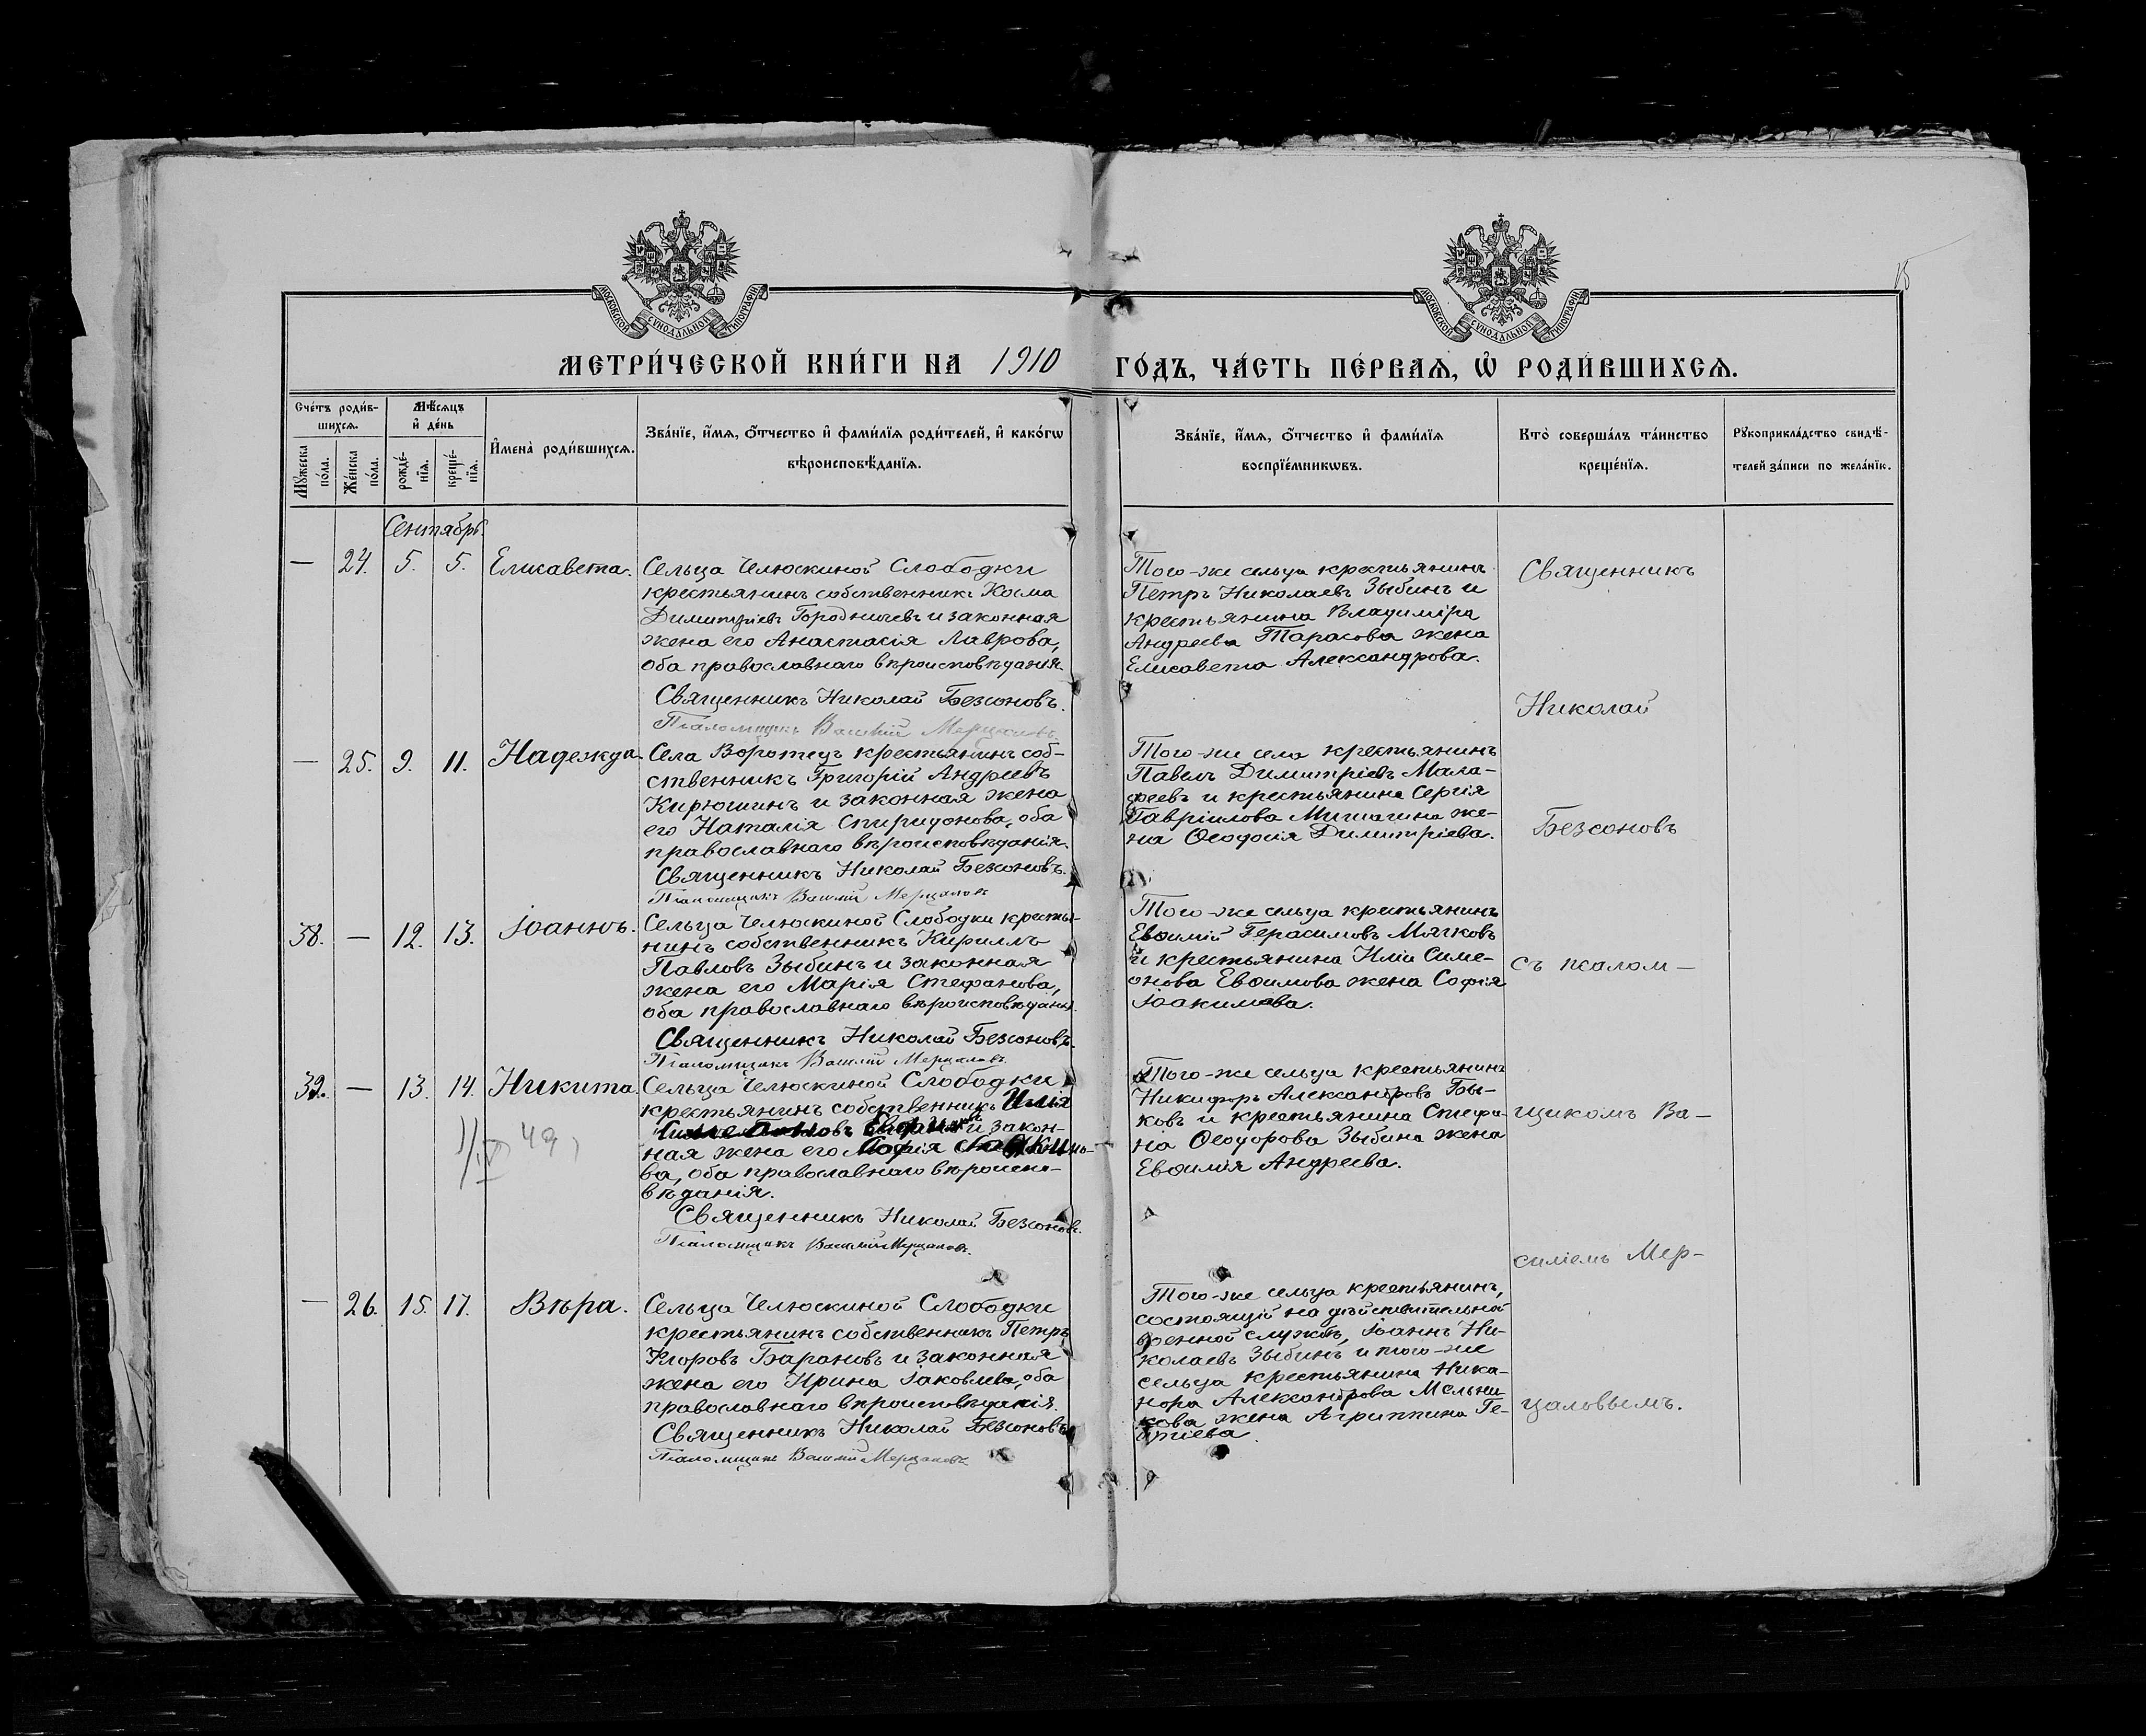 МОСКОВСКОЙ СѴНОДАЛЬНОЙ ТИПОГРАФІИ
МОСКОВСКОЙ СѴНОДАЛЬНОЙ ТИПОГРАФІИ
МЕТРИ́ЧЕСКОЙ КНИ́ГИ НА 1910 ГО́ДЪ, ЧА́СТЬ ПЕ́РВАѦ, Ѡ҆ РОДИ́ВШИХСѦ.
Сче́тъ роди́в-
шихсѧ.
Мѣ́сѧцъ
и҆ де́нь
Мꙋ́жеска
по́ла.
Же́нска
по́ла.
рожде́-
нїѧ.
креще́-
нїѧ.
И҆мена̀ роди́вшихсѧ.
Зва́нїе, и҆́мѧ, ѻ҆́тчество и҆ фами́лїѧ роди́телей, и҆ како́гѡ
вѣроисповѣ́данїѧ.
Зва́нїе, и҆́мѧ, ѻ҆́тчество и҆ фами́лїѧ
воспрїе́мникѡвъ.
Кто̀ соверша́лъ та́инство
креще́нїѧ.
Рꙋкоприкла́дство свидѣ́-
телей за́писи по жела́нїю.
Сентябрь.
— 24. 5. 5. Елисавета.
Сельца Челюскиной Слободки
крестьянинъ собственникъ Косма
Димитріевъ Городничевъ и законная
жена его Анастасія Лаврова,
оба православнаго вѣроисповѣданія
Священникъ Николай Безсоновъ.
Псаломщикъ Василій Мерцаловъ.
Того-же сельца крестьянинъ
Петръ Николаевъ Зыбинъ и
крестьянина Владиміра
Андреева Тарасова жена
Елисавета Александрова.
— 25. 9. 11. Надежда.
Села Воротецъ крестьянинъ соб-
ственникъ Григорій Андреевъ
Кирюшинъ и законная жена
его Наталія Спиридонова, оба
православнаго вѣроисповѣданія.
Священникъ Николай Безсоновъ.
Псаломщикъ Василій Мерцаловъ
Того-же села крестьянинъ
Павелъ Димитріевъ Мала-
феевъ и крестьянина Сергія
Гавріилова Мишагина же-
на Ѳеодосія Димитріева.
38. — 12. 13. Іоаннъ.
Сельца Челюскиной Слободки крестья-
нинъ собственникъ Кириллъ
Павловъ Зыбинъ и законная
жена его Марія Стефанова,
оба православнаго вѣроисповѣданія.
Священникъ Николай Безсоновъ.
Псаломщикъ Василій Мерцаловъ.
Того-же сельца крестьянинъ
Евѳимій Герасимовъ Мягковъ
и крестьянина Иліи Симе-
онова Евѳимова жена Софія
Іоакимова.
39. — 13. 14. Никита.
Сельца Челюскиной Слободки
крестьянинъ собственникъ Илія
и закон-
ная жена его Софія
ва, оба православнаго вѣроиспо-
вѣданія.
Священникъ Николай Безсоновъ.
Псаломщикъ Василій Мерцаловъ.
Того-же сельца крестьянинъ
Никифоръ Александровъ Бы-
ковъ и крестьянина Стефа-
на Ѳеодорова Зыбина жена
Евѳимія Андреева.
— 26. 15. 17. Вѣра.
Сельца Челюскиной Слободки
крестьянинъ собственникъ Петръ
Егоровъ Барановъ и законная
жена его Ирина Іаковлева, оба
православнаго вѣроисповѣданія.
Священникъ Николай Безсоновъ
Псаломщикъ Василій Мерцаловъ
Того-же сельца крестьянинъ,
состоящій на дѣйствительной
военной службѣ, Іоаннъ Ни-
колаевъ Зыбинъ и того-же
сельца крестьянина Ника-
нора Александрова Мельни-
кова жена Агриппина Ге-
Священникъ
Николай
Безсоновъ
съ псалом-
щикомъ Ва-
силіемъ Мер-
цаловымъ.